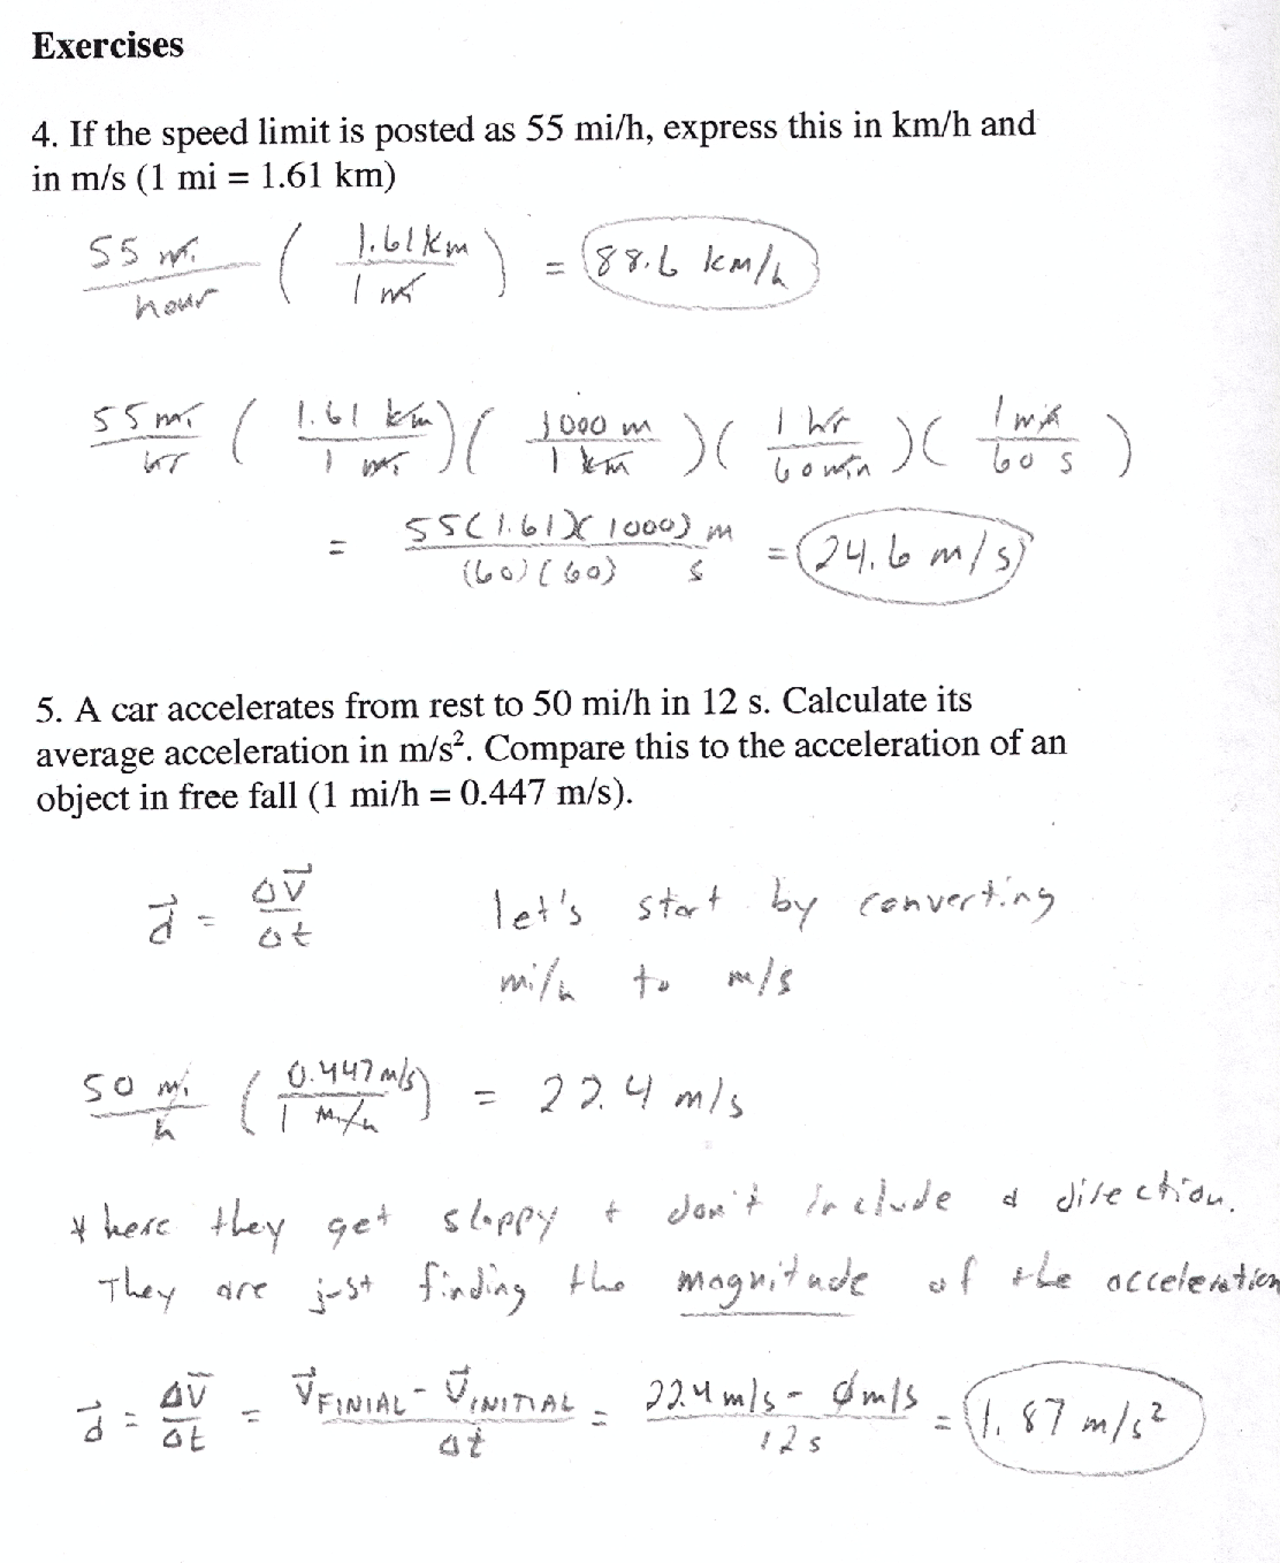 Exercises
4. If the speed limit is posted as 55 mi/h, express this in km/h and
in m/s (1 mi = 1.61 km)
55 mi/hour ( 1.61 km / 1 mi ) = 88.6 km/h
55 mi/hr ( 1.61 km / 1 mi )( 1000 m / 1 km )( 1 hr / 60 min )( 1 min / 60 s )
= 55(1.61)(1000) m / (60)(60) s = 24.6 m/s
5. A car accelerates from rest to 50 mi/h in 12 s. Calculate its
average acceleration in m/s². Compare this to the acceleration of an
object in free fall (1 mi/h = 0.447 m/s).
a⃗ = Δv⃗/Δt let's start by converting
mi/h to m/s
50 mi/h ( 0.447 m/s / 1 mi/h ) = 22.4 m/s
* here they get sloppy + don't include a direction.
They are just finding the magnitude of the acceleration
a⃗ = Δv⃗/Δt = v⃗FINIAL - v⃗INITIAL / Δt = 22.4 m/s - 0 m/s / 12 s = 1.87 m/s²